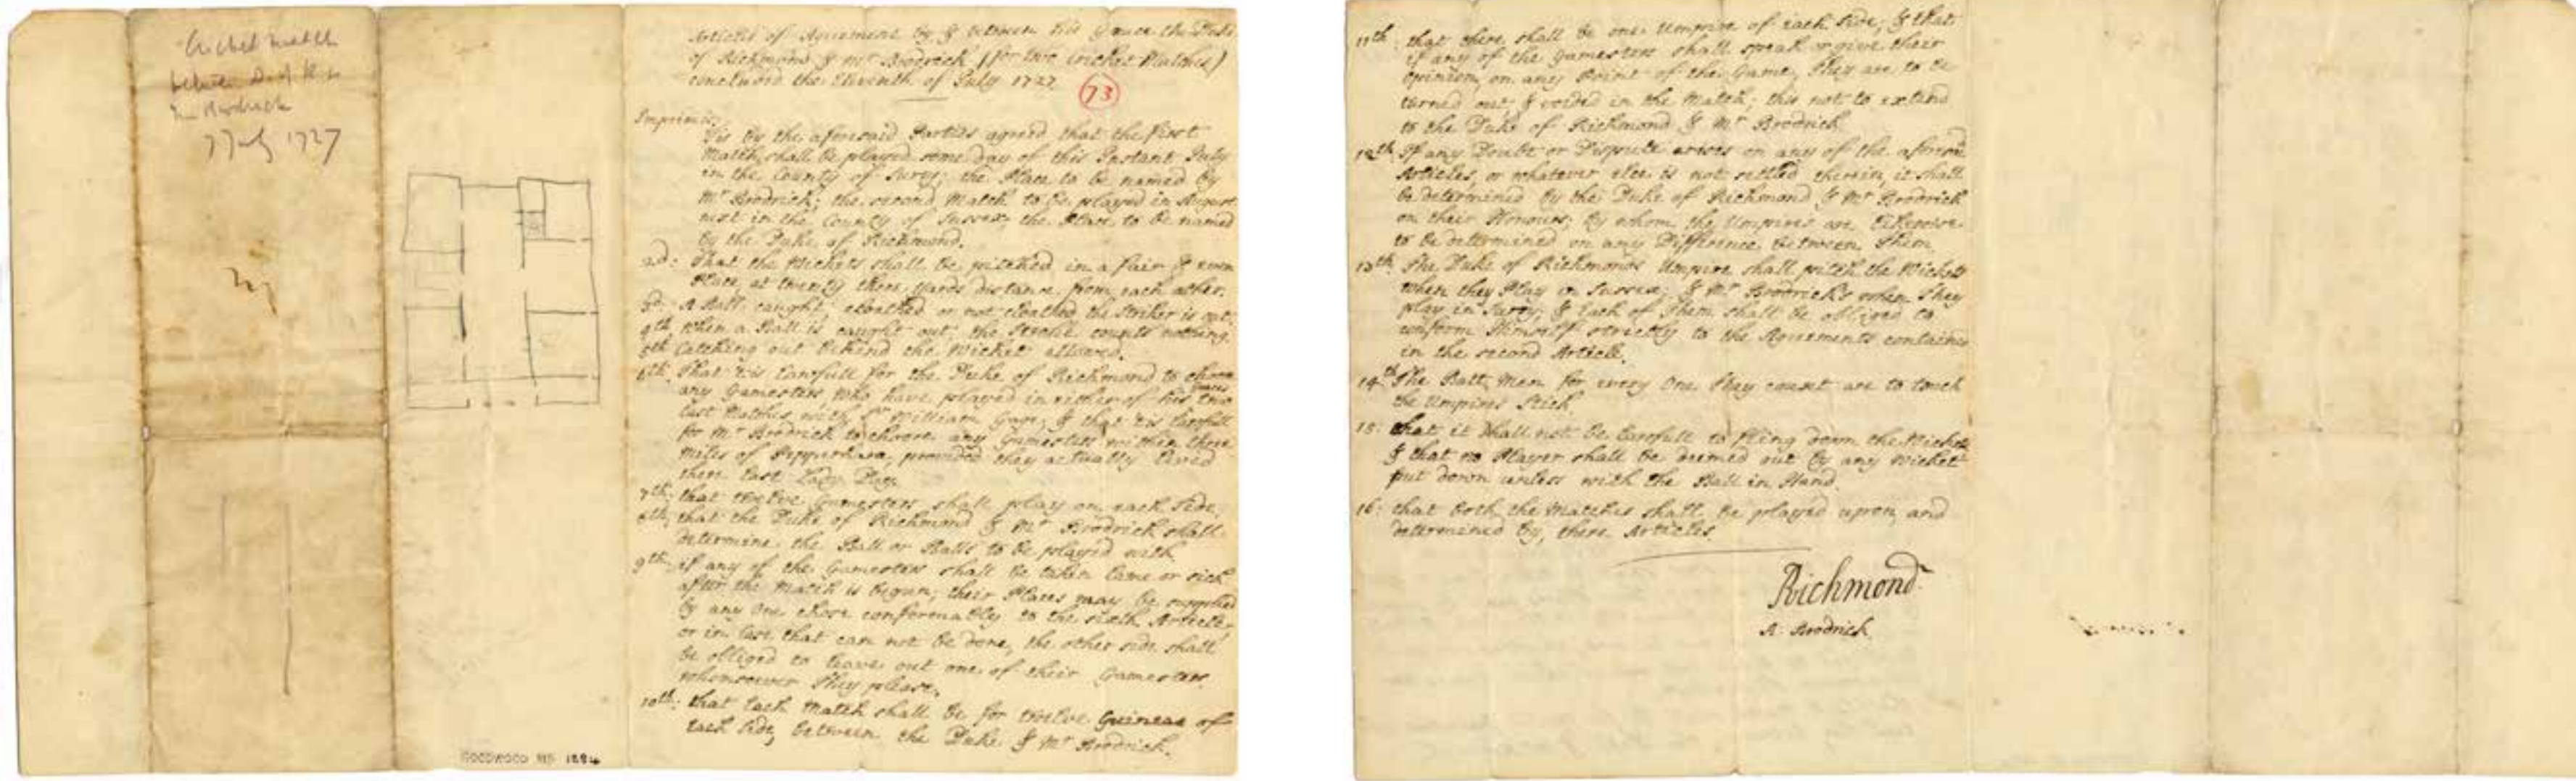 Cricket match
between D of R &
Mr Brodrick
July 1727
Articles of Agreement by & between His Grace the Duke
of Richmond & Mr Brodrick (for two Cricket Matches)
concluded the Eleventh of July 1727
73
Imprimis,
'Tis by the aforesaid Parties agreed that the first
Match shall be played some day of this Instant July
in the County of Surry; the Place to be named by
Mr Brodrick; the second Match to be played in August
next in the County of Sussex, the Place to be named
by the Duke of Richmond.
2d: That the Wickets shall be pitched in a fair & even
Place, at twenty three yards distance from each other.
3d: A Ball caught, cloathed or not cloathed the Striker is out.
4th, When a Ball is caught out, the Stroke counts nothing.
5th Catching out behind the Wicket allowed.
6th: That 'tis Lawfull for the Duke of Richmond to choose
any Gamesters who have played in either of his Graces two
last Matches with Sr William Gage; & that 'tis Lawfull
for Mr Brodrick to choose any Gamesters within three
Miles of Pepperhara, provided they actually lived
there last Lady Day.
7th: that twelve Gamesters shall play on each side,
8th; that the Duke of Richmond & Mr Brodrick shall
determine the Ball or Balls to be played with.
9th: if any of the Gamesters shall be taken lame or sick
after the Match is begun, their Places may be supplied
by any One chose conformably to the sixth Article,
or in Case that can not be done, the other side shall
be obliged to leave out one of their Gamesters,
whomsoever they please.
10th: that each Match shall be for twelve Guineas of
each Side, between the Duke & Mr Brodrick.
GOODWOOD MS 1884
11th: that there shall be one Umpire of each Side; & that
if any of the Gamesters shall speak or give their
opinion, on any Point of the Game, they are to be
turned out, & voided in the Match; this not to extend
to the Duke of Richmond & Mr Brodrick.
12th: If any Doubt or Dispute arises on any of the aforesd
Articles, or whatever else is not settled therein, it shall
be determined by the Duke of Richmond & Mr Brodrick
on their Honours; by whom the Umpires are likewise
to be determined on any Difference between Them.
13th: The Duke of Richmonds Umpire shall pitch the Wickets
when they Play in Sussex; & Mr Brodricks when they
play in Surry; & Each of Them shall be obliged to
conform Himself strictly to the Agreements contained
in the second Article.
14th The Batt Men for every One they count are to touch
the Umpires Stick.
15: that it shall not be Lawfull to fling down the Wickets
& that no Player shall be deemed out by any Wicket
put down unless with the Ball in Hand.
16: that both the Matches shall be played upon, and
determined by, these Articles.
Richmond
A. Brodrick